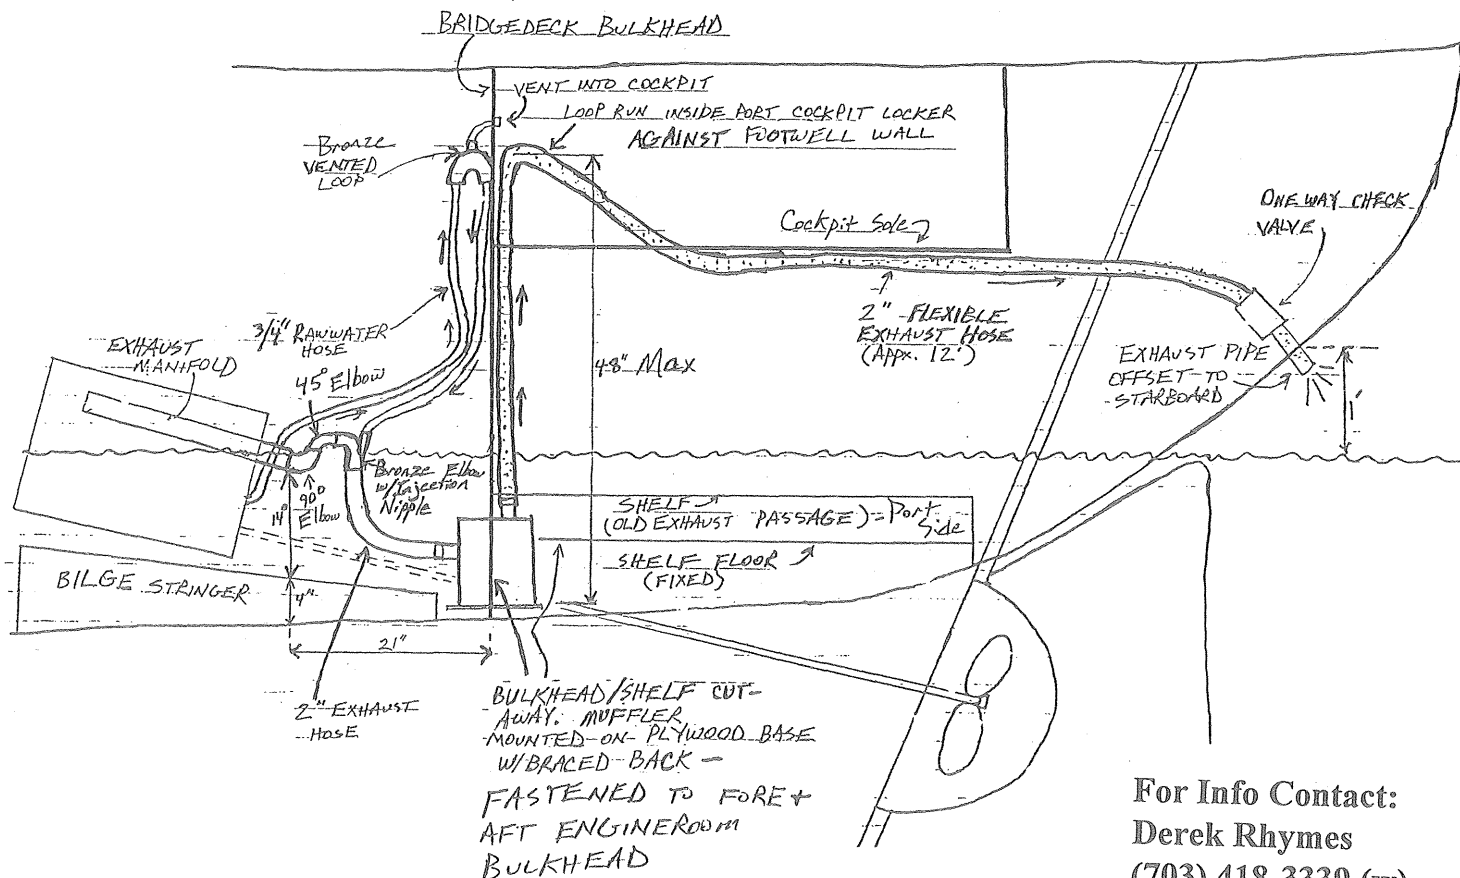 BRIDGEDECK BULKHEAD
VENT INTO COCKPIT
LOOP RUN INSIDE PORT COCKPIT LOCKER
AGAINST FOOTWELL WALL
Bronze
VENTED
LOOP
ONE WAY CHECK
VALVE
Cockpit Sole
3/4" RAWWATER
HOSE
2" FLEXIBLE
EXHAUST HOSE
(Appx. 12')
EXHAUST
MANIFOLD
45° Elbow
48" Max
EXHAUST PIPE
OFFSET TO
STARBOARD
1'
Bronze Elbow
w/ Injection
Nipple
90°
Elbow
14"
SHELF
(OLD EXHAUST PASSAGE) = Port
Side
SHELF FLOOR
(FIXED)
BILGE STRINGER
4"
21"
2" EXHAUST
HOSE
BULKHEAD/SHELF CUT-
AWAY. MUFFLER
MOUNTED ON PLYWOOD BASE
W/BRACED BACK -
FASTENED TO FORE +
AFT ENGINEROOM
BULKHEAD
For Info Contact:
Derek Rhymes
(703) 418-3330 (w)